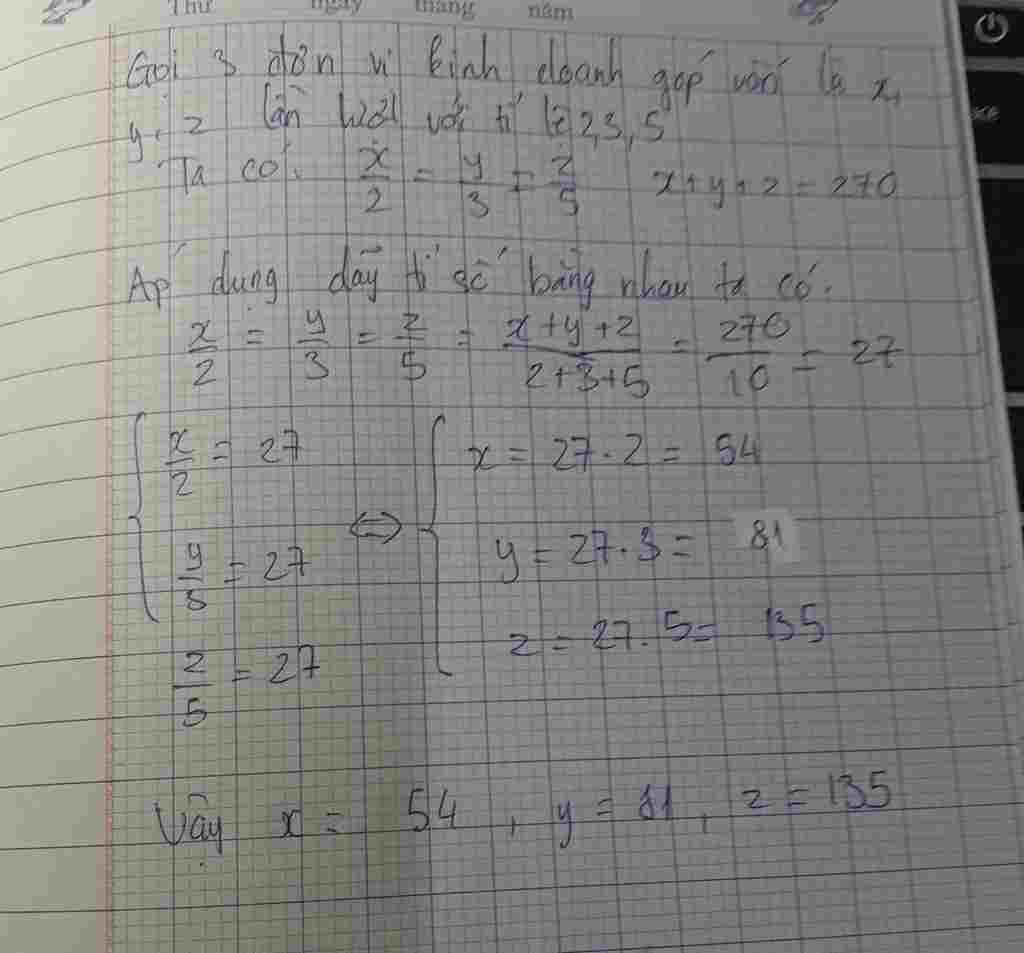 Thứ ngày tháng năm
Gọi 3 đơn vị kinh doanh góp vốn là x,
y, z lần lượt với tỉ lệ 2, 3, 5
Ta có: x/2 = y/3 = z/5 x + y + z = 270
Áp dụng dãy tỉ số bằng nhau ta có:
x/2 = y/3 = z/5 = (x + y + z)/(2 + 3 + 5) = 270/10 = 27
{ x/2 = 27 ⇔ { x = 27 . 2 = 54
y/3 = 27 y = 27 . 3 = 81
z/5 = 27 z = 27 . 5 = 135
Vậy x = 54, y = 81, z = 135